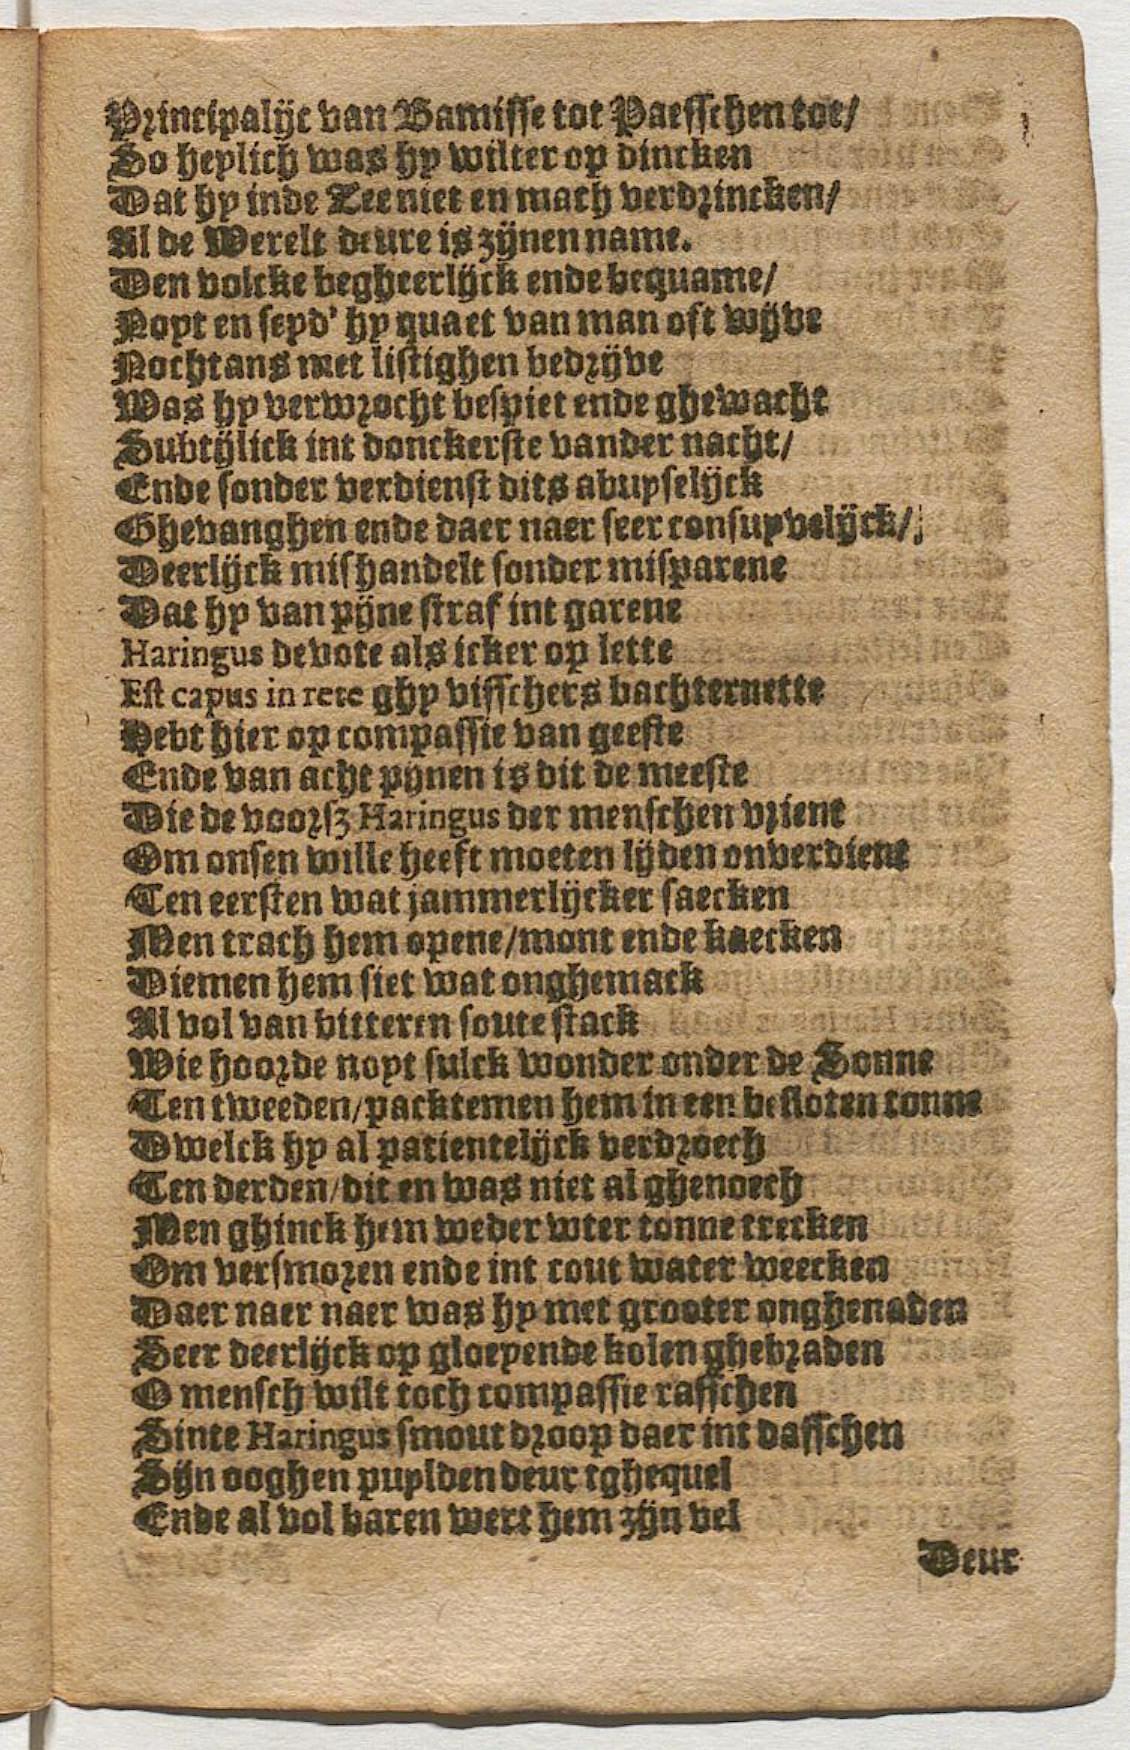 Principalijc van Bamisse tot Paesschen toe/
So heylich was hy wilter op dincken
Dat hy inde Zee niet en mach verdrincken/
Al de Werelt deure is zijnen name.
Den volcke begheerlijck ende bequame/
Noyt en seyd' hy quaet van man oft wijve
Nochtans met listighen bedrijve
Was hy verwrocht bespiet ende ghewacht
Subtijlick int donckerste vander nacht/
Ende sonder verdienst dits abuyselijck
Ghevanghen ende daer naer seer confuyvelijck/
Deerlijck mishandelt sonder misparene
Dat hy van pijne straf int garene
Haringus devote als icker op lette
Est capus in rete ghy visschers bachternette
Hebt hier op compassie van geeste
Ende van acht pynen is dit de meeste
Die de voorsz Haringus der menschen vrient
Om onsen wille heeft moeten lijden onverdient
Ten eersten wat jammerlijcker saecken
Men trach hem opene/mont ende kaecken
Diemen hem siet wat onghemack
Al vol van bitteren soute stack
Wie hoorde noyt sulck wonder onder de Sonne
Ten tweeden/packtemen hem in een besloten tonne
Dwelck hy al patientelijck verdroech
Ten derden/dit en was niet al ghenoech
Men ghinck hem weder wter tonne trecken
Om versmoren ende int cout water weecken
Daer naer naer was hy met grooter onghenaden
Seer deerlijck op gloeyende kolen ghebraden
O mensch wilt toch compassie rasschen
Sinte Haringus smout droop daer int dasschen
Sijn ooghen puylden deur tghequel
Ende al vol baren wert hem zijn vel
Deur